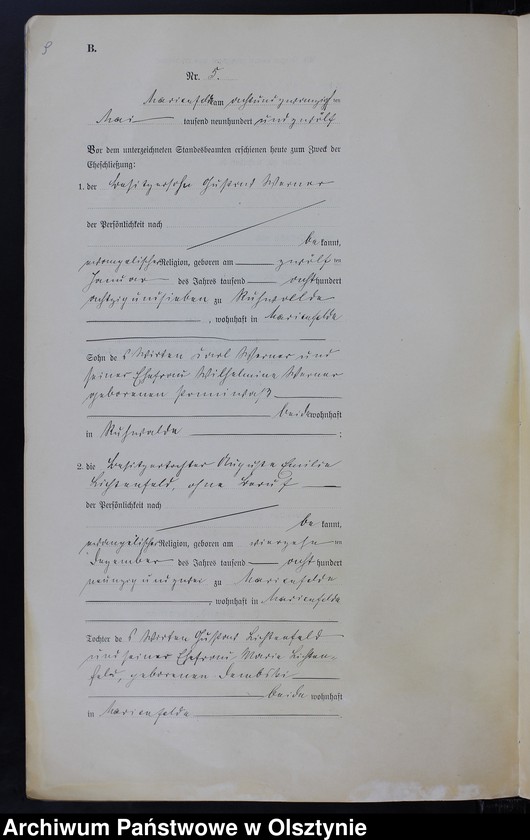 9
B.
Nr. 5.
Marienfelde am achtundzwanzigsten
Mai tausend neunhundert und zwölf
Vor dem unterzeichneten Standesbeamten erschienen heute zum Zweck der
Eheschließung:
1. der Besitzersohn Gustav Werner
der Persönlichkeit nach
be kannt,
evangelischer Religion, geboren am zwölften
Januar des Jahres tausend acht hundert
achtzigundsieben zu Ruhwalde
, wohnhaft in Marienfelde
Sohn des Wirten Karl Werner und
seiner Ehefrau Wilhelmine Werner
geborenen
beide wohnhaft
in Ruhwalde ;
2. die Besitzertochter Auguste Emilie
Lichtenfeld, ohne Beruf
der Persönlichkeit nach
be kannt,
evangelischer Religion, geboren am vierzehnten
Dezember des Jahres tausend acht hundert
neunzigundzwei zu Marienfelde
, wohnhaft in Marienfelde
Tochter des Wirten Gustav Lichtenfeld
und seiner Ehefrau Marie Lichten-
feld, geborenen Dembski
beide wohnhaft
in Marienfelde
Archiwum Państwowe w Olsztynie